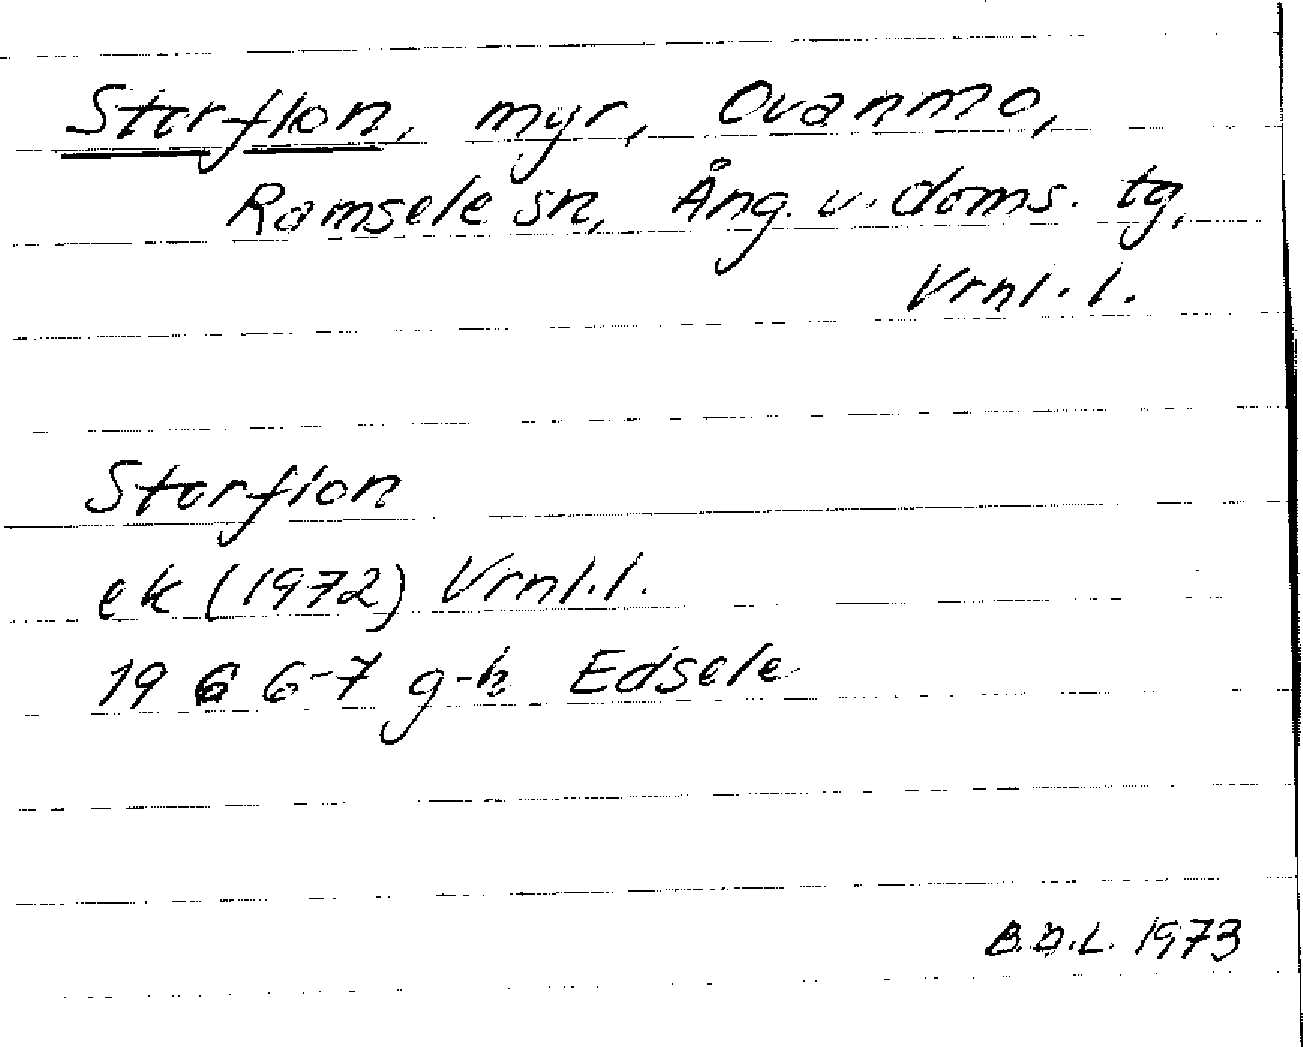 Storflon, myr, Ovanmo,
Ramsele sn, Ång. v. doms. tg,
Vrnl. l.
Storflon
ek (1972) Vrnl. l.
1966-7 g-h Edsele
B.D.L. 1973